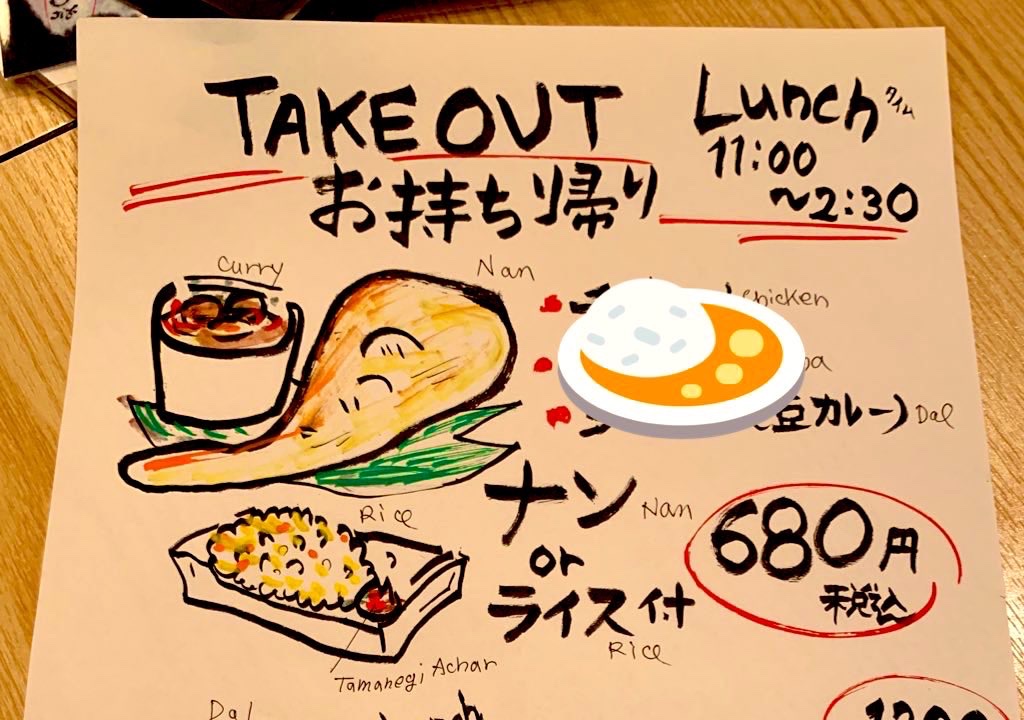 TAKE OUT
お持ち帰り
Lunch タイム
11:00
~2:30
Curry
Nan
Chicken
豆カレー) Dal
ナン Nan
or
ライス付
Rice
680円
税込
Rice
Tamanegi Achar
Dal